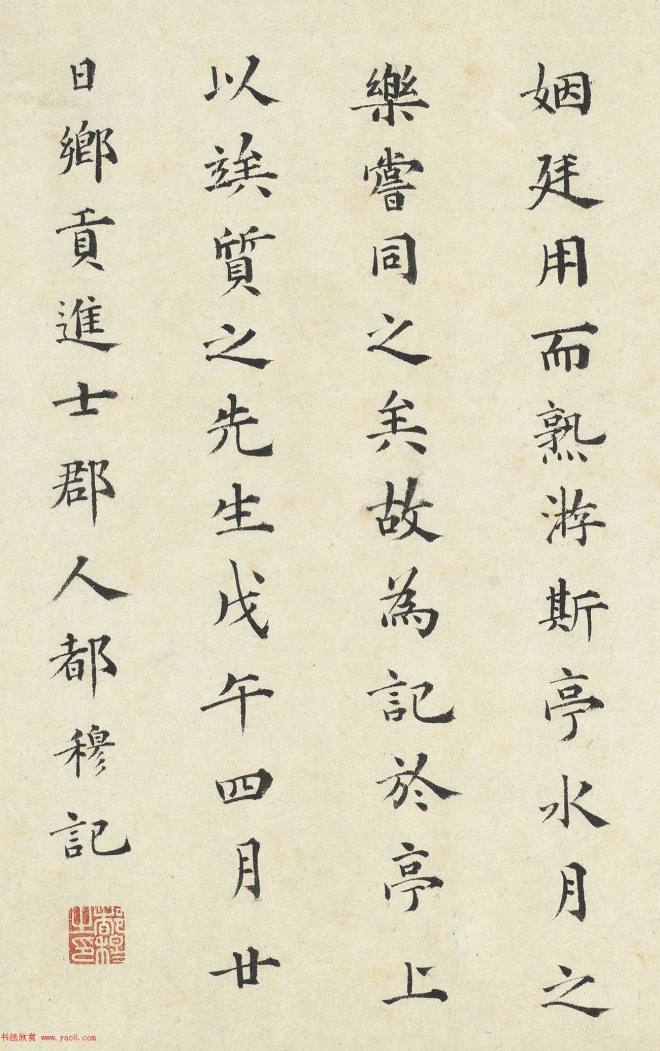 姻廷用而熟游斯亭水月之
樂嘗同之矣故為記於亭上
以竢質之先生戊午四月廿
日鄉貢進士郡人都穆記
都穆之印
书法欣赏 www.yac8.com